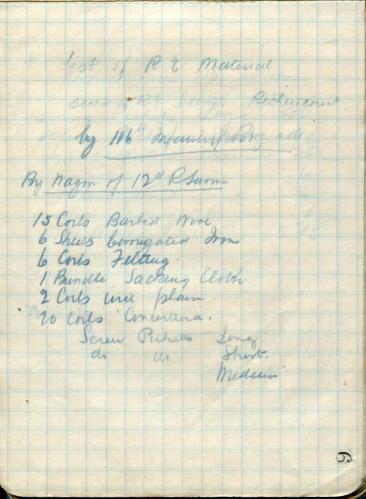 list of R E Material
R E Dump
by 116th Infantry Brigade
By Wagon of 12th R. Sussex
15 Coils Barbed Wire
6 Sheets Corrugated Iron
6 Coils Felting.
1 Bundle Sacking Cloth
2 Coils wire plain
20 Coils Concertina.
Screw Pickets Long
do do Short.
Medium